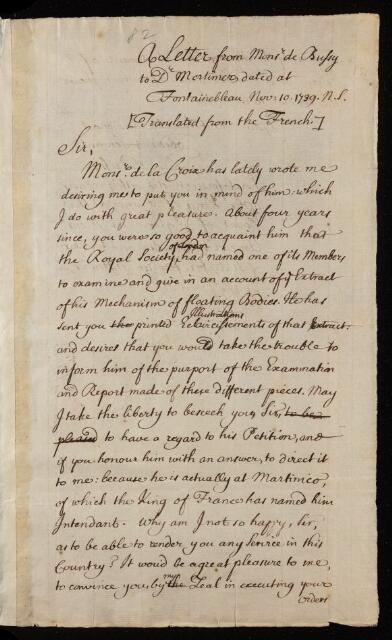 82
A Letter from Monsr. de Bussy
to Dr. Mortimer, dated at
Fontainebleau Nov. 10. 1739. N.S.
[Translated from the French.]
Sir,
Monsr. de la Croix has lately wrote me
desiring me to put you in mind of him: which
I do with great pleasure. About four years
since, you were so good to acquaint him that
of London
the Royal Society had named one of its Members
to examine and give in an account of ye Extract
of his Mechanism of floating Bodies. He has
Illustrations
sent you the printed Eclaircissements of that Extract:
and desires that you would take the trouble to
inform him of the purport of the Examination
and Report made of these different pieces. May
I take the liberty to beseech you, Sir, to be
pleased to have a regard to his Petition, and
if you honour him with an answer, to direct it
to me: because he is actually at Martinico,
of which the King of France has named him
Intendant. Why am I not so happy, Sir,
as to be able to render you any Service in this
Country? It would be a great pleasure to me,
my
to convince you, by the Zeal in executing your
orders